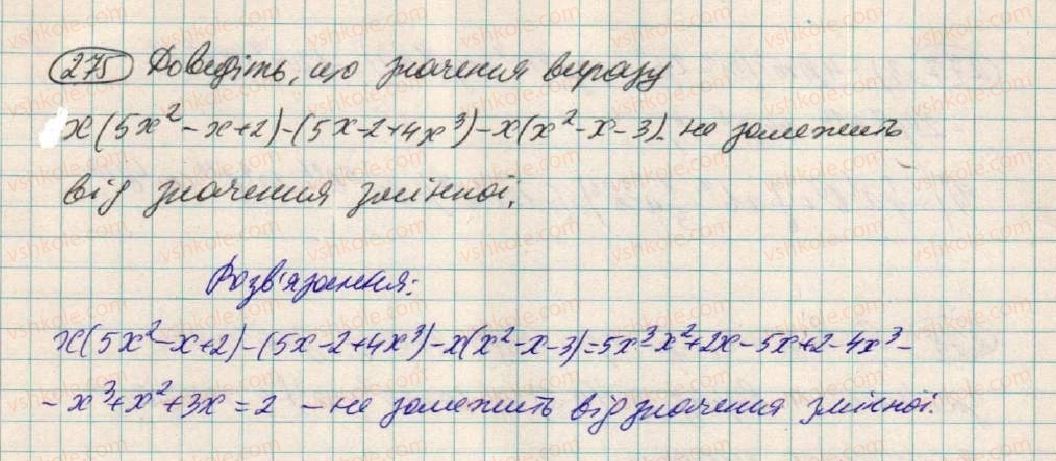 275 Доведіть, що значення виразу
x(5x²-x+2)-(5x-2+4x³)-x(x²-x-3) не залежить
від значення змінної.
Розв'язання:
x(5x²-x+2)-(5x-2+4x³)-x(x²-x-3)=5x³-x²+2x-5x+2-4x³-
-x³+x²+3x=2 - не залежить від значення змінної.